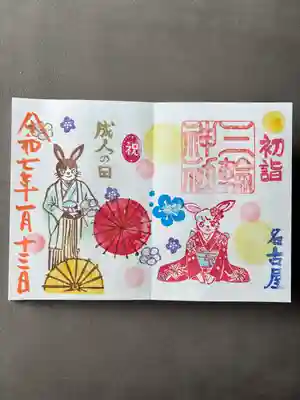 初詣
三輪
神社
名古屋
成人の日
祝
令和七年一月十三日